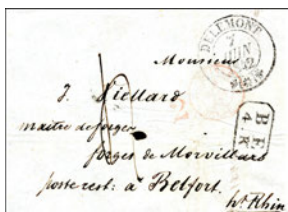 DELEMONT
7
JUIN
Monsieur
J. Viellard
maitre de forges
B.F.
4.R.
forges de Morvillars
poste rest: à Belfort.
ht Rhin